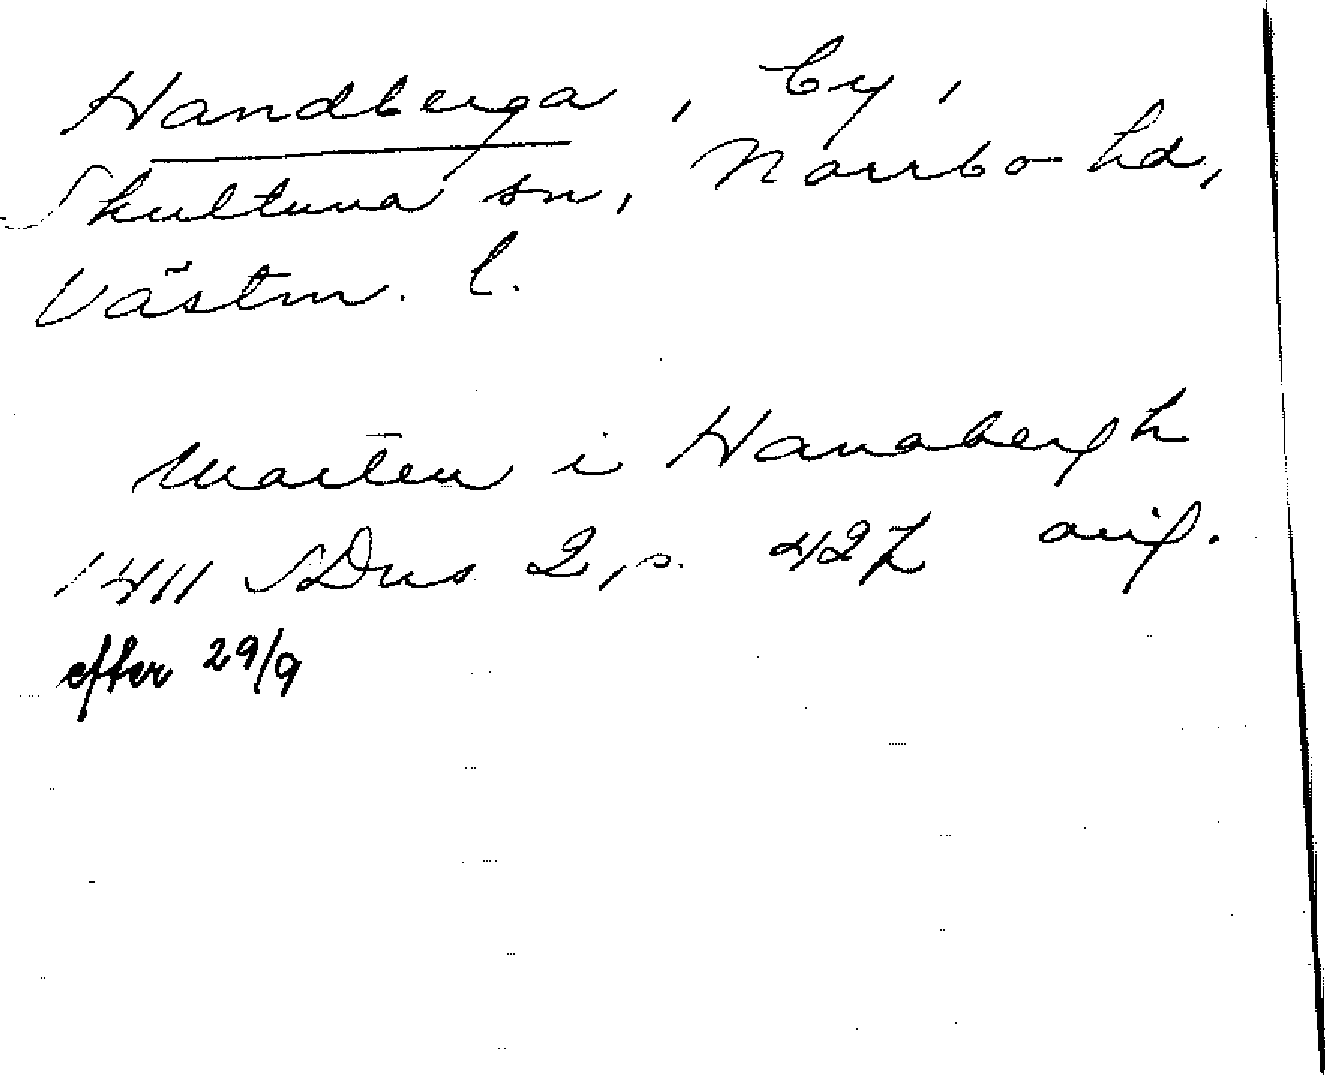 Handberga, by,
Skultuna sn, Norrbo hd,
Västm. l.
Marten i Hanabergh
1411 SDns 2, s. 427 orig.
efter 29/9